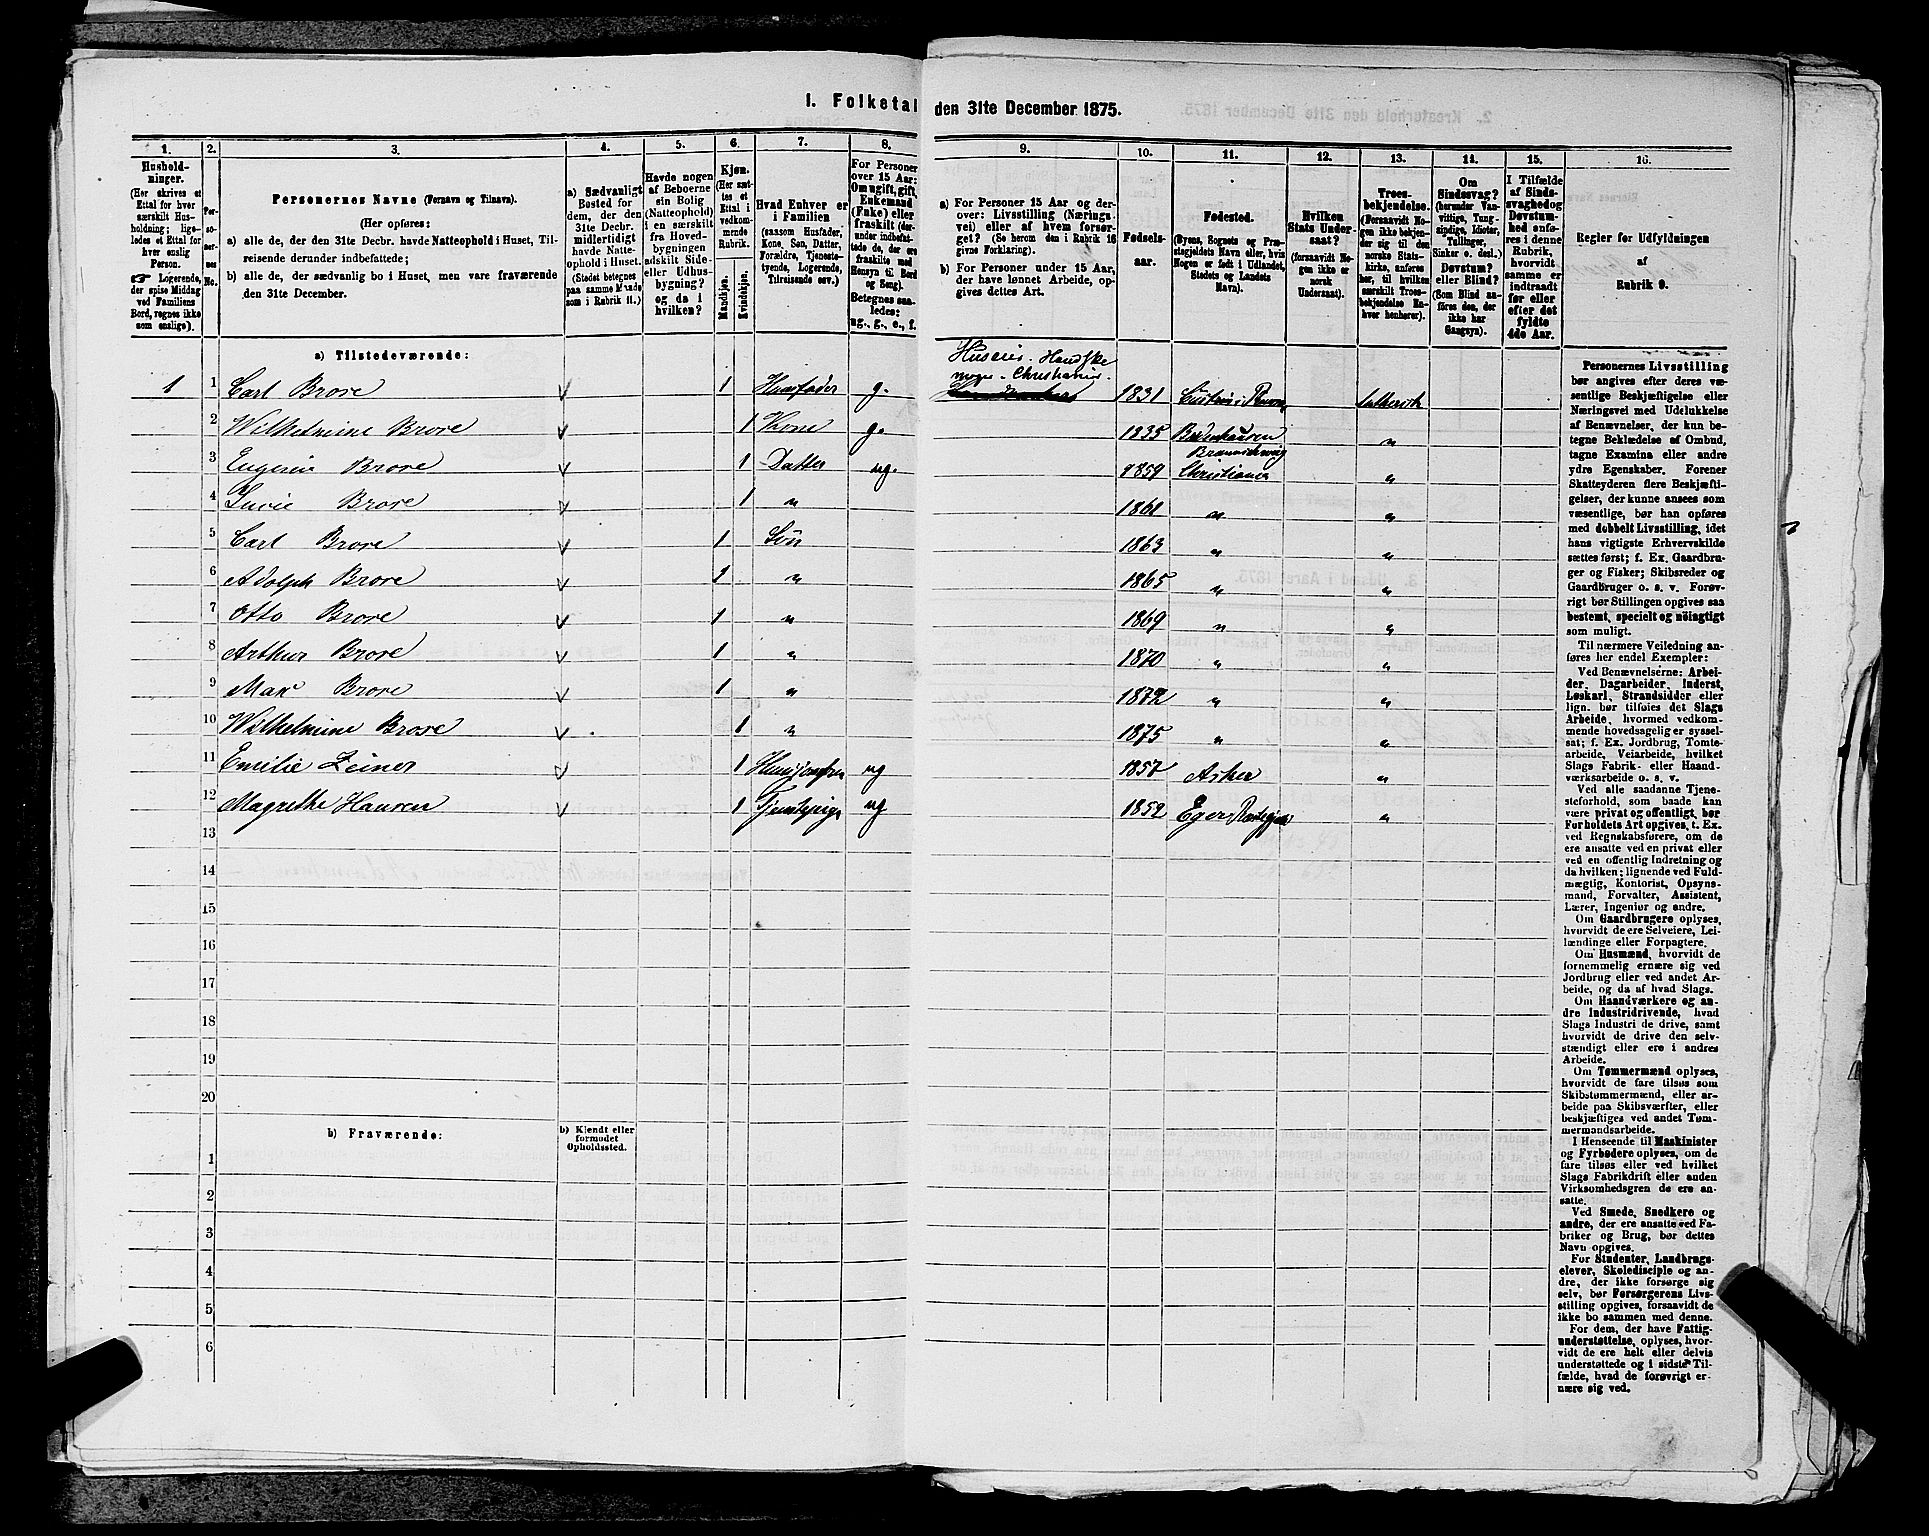 I. Folketal den 31te December 1875.
1. 2. 3. 4. 5. 6. 7. 8. 9. 10. 11. 12. 13. 14. 15. 16.
Hushold-
ninger.
(Her skrives et
Ettal for hver
særskilt Hus-
holdning; lige-
ledes et Ettal for
hver enslig
Person.
☞ Logerende,
der spise Middag
ved Familiens
Bord, regnes ikke
som enslige).
Per-
so-
ner-
nes
No.
Personernes Navne (Fornavn og Tilnavn).
(Her opføres:
a) alle de, der den 31te Decbr. havde Natteophold i Huset, Til-
reisende derunder indbefattede;
b) alle de, der sædvanlig bo i Huset, men vare fraværende
den 31te December.
a) Sædvanligt
Bosted for
dem, der den
31te Decbr.
midlertidigt
havde Natte-
ophold i Huset.
(Stedet betegnes
paa samme Maade
som i Rubrik 11.)
Havde nogen
af Beboerne
sin Bolig
(Natteophold)
i en særskilt
fra Hoved-
bygningen
adskilt Side-
eller Udhus-
bygning?
og da i
hvilken?
Kjøn.
(Her sæt-
tes et
Ettal i
vedkom-
mende
Rubrik.
Mandkjøn.
Kvindekjøn.
Hvad Enhver er
i Familien
(saasom Husfader,
Kone, Søn, Datter,
Forældre, Tjeneste-
tyende, Logerende,
Tilreisende osv.)
For Personer
over 15 Aar:
Om ugift, gift,
Enkemand
(Enke) eller
fraskilt (der-
under indbefat-
tede de, der ere
fraskilte med
Hensyn til Bord
og Seng).
Betegnes saa-
ledes:
ug., g., e., f.
a) For Personer 15 Aar og der-
over: Livsstilling (Nærings-
vei) eller af hvem forsør-
get? (Se herom den i Rubrik 16
givne Forklaring).
b) For Personer under 15 Aar,
der have lønnet Arbeide, op-
gives dettes Art.
Fødsels-
aar.
Fødested.
(Byens, Sognets og Præ-
stegjeldets Navn eller, hvis
Nogen er født i Udlandet,
Stedets og Landets
Navn).
Hvilken
Stats Under-
saat?
(forsaavidt No-
gen ikke er
norsk
Undersaat).
Troes-
bekjendelse.
(Forsaavidt No-
gen ikke bekjen-
der sig til den
norske Stats-
kirke, anføres
her, til hvilken
særskilt Troes-
bekjendelse En-
hver henhører).
Om
Sindssvag?
(herunder Van-
vittige, Tung-
sindige, Idioter,
Tullinger,
Sinker o. desl.)
Døvstum?
eller Blind?
(Som Blind an-
føres den, der
ikke har
Gangsyn).
I Tilfælde
af Sinds-
svaghed og
Døvstum-
hed anfø-
res i denne
Rubrik,
hvorvidt
samme er
indtraadt
før eller
efter det
fyldte
4de Aar.
Regler for Udfyldningen
af
Rubrik 9.
a) Tilstedeværende:
Huseier. Handske
mager. Christiania.
1 1 Carl Brose v 1 Husfader g. 1831 Luthersk
2 Wilhelmine Brose v 1 Kone g. 1835 "
Braunschweig
3 Eugenie Brose v 1 Datter ug. 1859 Christiania "
4 Lucie Brose v 1 " 1861 " "
5 Carl Brose v 1 Søn 1863 " "
6 Adolph Brose v 1 " 1865 " "
7 Otto Brose v 1 " 1869 " "
8 Arthur Brose v 1 " 1870 " "
9 Max Brose v 1 " 1872 " "
10 Wilhelmine Brose v 1 " 1875 " "
11 Emilie Zeiner v 1 Husjomfru ug 1857 Asker "
12 Magrethe Hansen v 1 Tjenstpige ug 1852 Eger "
13
14
15
16
17
18
19
20
b) Fraværende:
b) Kjendt eller
formodet
Opholdssted.
1
2
3
4
5
6
Personernes Livsstilling
bør angives efter deres væ-
sentlige Beskjæftigelse eller
Næringsvei med Udelukkelse
af Benævnelser, der kun be-
tegne Beklædelse af Ombud,
tagne Examina eller andre
ydre Egenskaber. Forener
Skatteyderen flere Beskjæfti-
gelser, der kunne ansees som
væsentlige, bør han opføres
med dobbelt Livsstilling, idet
hans vigtigste Erhvervskilde
sættes først; f. Ex. Gaardbru-
ger og Fisker; Skibsreder og
Gaardbruger o. s. v. Forøv-
rigt bør Stillingen opgives saa
bestemt, specielt og nøiagtigt
som muligt.
Til nærmere Veiledning an-
føres her endel Exempler:
Ved Benævnelserne: Arbei-
der, Dagarbeider, Inderst,
Løskarl, Strandsidder eller
lign. bør tilføies det Slags
Arbeide, hvormed vedkom-
mende hovedsagelig er syssel-
sat; f. Ex. Jordbrug, Tomte-
arbeide, Veiarbeide, hvilket
Slags Fabrik- eller Haand-
værksarbeide o. s. v.
Ved alle saadanne Tjene-
steforhold, som baade kan
være privat og offentligt, bør
Forholdets Art opgives, t. Ex.
ved Regnskabsførere, om de
ere ansatte ved en privat eller
ved en offentlig Indretning og
da hvilken; lignende ved Fuld-
mægtig, Kontorist, Opsyns-
mand, Forvalter, Assistent,
Lærer, Ingeniør og andre.
Om Gaardbrugere oplyses,
hvorvidt de ere Selveiere, Lei-
lændinge eller Forpagtere.
Om Husmænd, hvorvidt de
fornemmelig ernære sig ved
Jordbrug eller ved andet Ar-
beide, og da af hvad Slags.
Om Haandværkere og an-
dre Industridrivende, hvad
Slags Industri de drive, samt
hvorvidt de drive den selv-
stændigt eller ere i andres
Arbeide.
Om Tømmermænd oplyses,
hvorvidt de fare tilsøs som
Skibstømmermænd, eller ar-
beide paa Skibsværfter, eller
beskjæftiges ved andet Tøm-
mermandsarbeide.
I Henseende til Maskinister
og Fyrbødere oplyses, om de
fare tilsøs eller ved hvilket
Slags Fabrikdrift eller anden
Virksomhedsgren de ere an-
satte.
Ved Smede, Snedkere og
andre, der ere ansatte ved Fa-
briker og Brug, bør dettes
Navn opgives.
For Studenter, Landbrugs-
elever, Skoledisciple og an-
dre, der ikke forsørge sig
selv, bør Forsørgerens Livs-
stilling opgives, forsaavidt de
ikke bo sammen med denne.
For dem, der have Fattig-
understøttelse, oplyses, hvor-
vidt de ere helt eller delvis
understøttede og i sidste Til-
fælde, hvad de forøvrigt er-
nære sig ved.